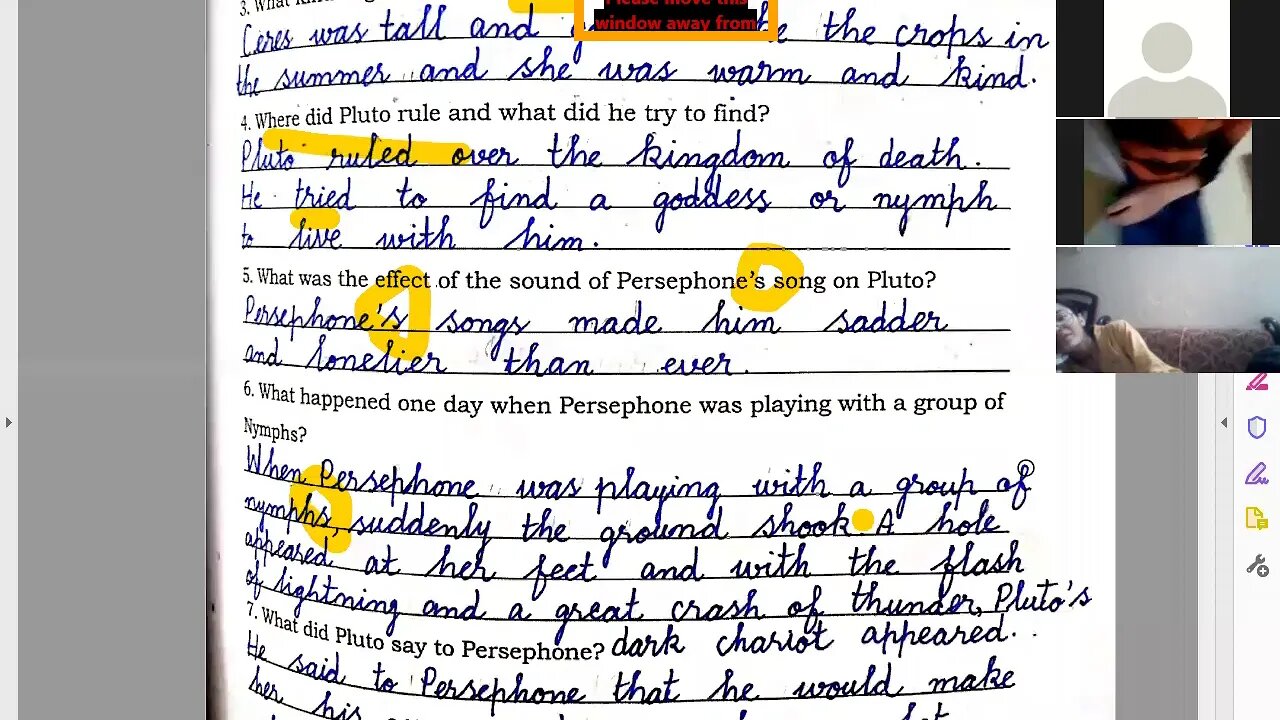 3. What
Please move this
window away from
Ceres was tall and the crops in
the summer and she was warm and kind.
4. Where did Pluto rule and what did he try to find?
Pluto ruled over the kingdom of death.
He tried to find a goddess or nymph
to live with him.
5. What was the effect of the sound of Persephone's song on Pluto?
Persephone's songs made him sadder
and lonelier than ever.
6. What happened one day when Persephone was playing with a group of
Nymphs?
When Persephone was playing with a group of
nymphs, suddenly the ground shook. A hole
appeared at her feet and with the flash
of lightning and a great crash of thunder, Pluto's
dark chariot appeared.
7. What did Pluto say to Persephone?
He said to Persephone that he would make
her his